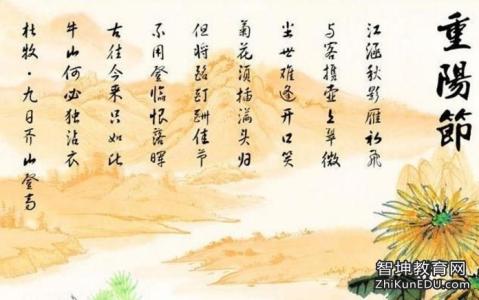 重陽節
江涵秋影雁初飛
与客携壶上翠微
尘世难逢开口笑
菊花须插满头归
但将酩酊酬佳节
不用登临恨落晖
古往今来只如此
牛山何必独沾衣
杜牧·九日齐山登高
智坤教育网
ZhiKunEDU.com